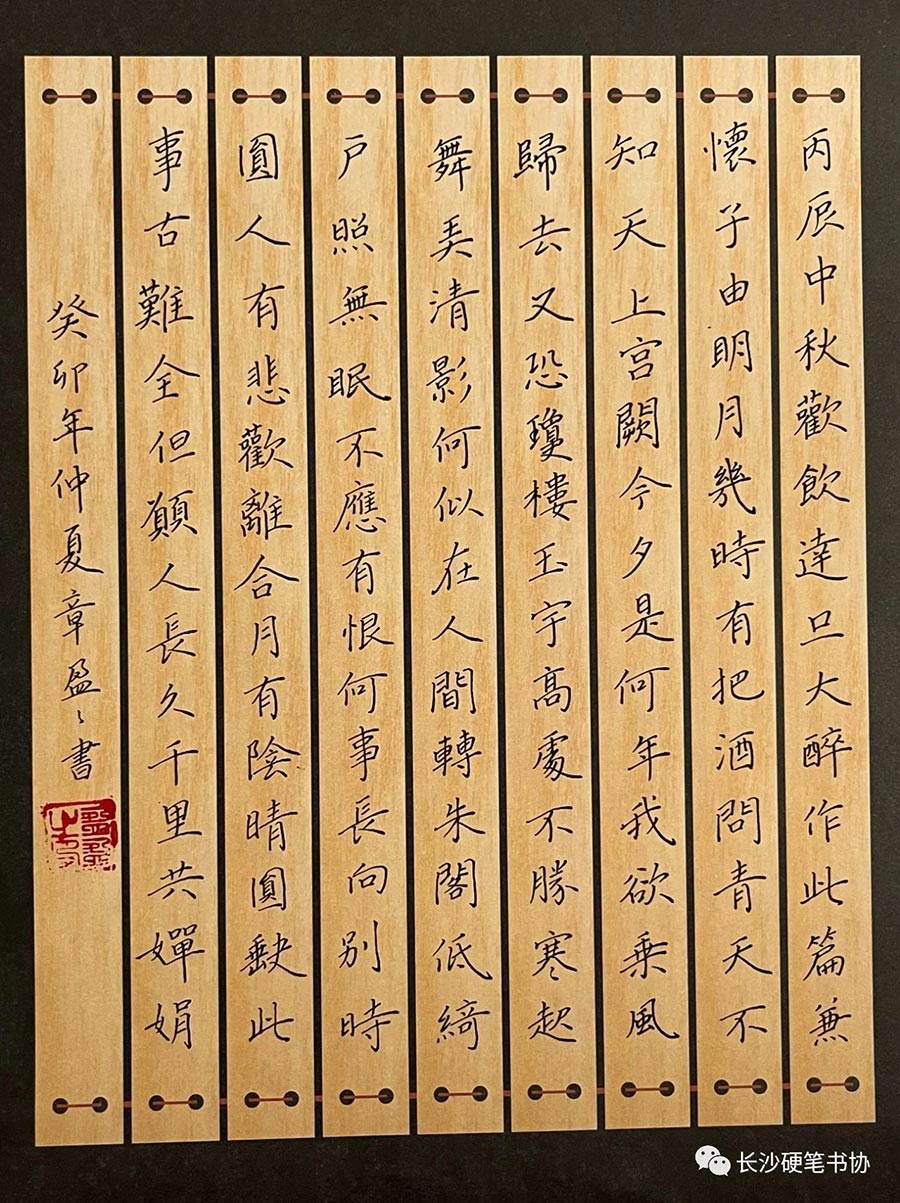 丙辰中秋歡飲達旦大醉作此篇兼
懷子由明月幾時有把酒問青天不
知天上宮闕今夕是何年我欲乘風
歸去又恐瓊樓玉宇高處不勝寒起
舞弄清影何似在人間轉朱閣低綺
戶照無眠不應有恨何事長向別時
圓人有悲歡離合月有陰晴圓缺此
事古難全但願人長久千里共嬋娟
癸卯年仲夏章盈〻書
长沙硬笔书协